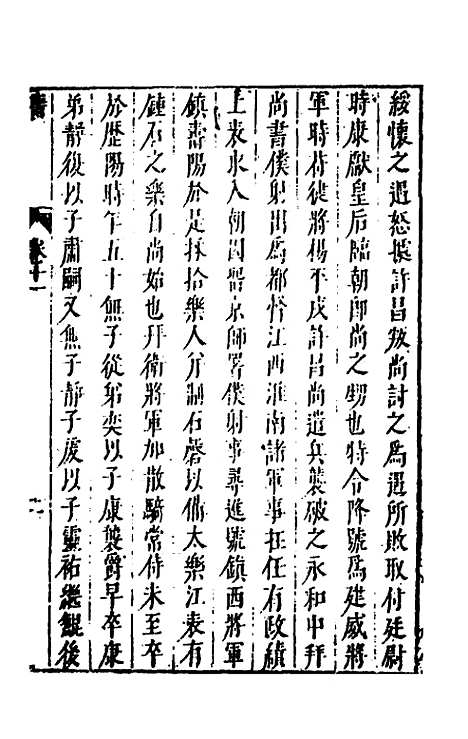 綏懷之遇怒據許昌叛尚討之爲遇所敗収付廷尉
時康獻皇后臨朝即尚之甥也特令降號爲建威將
軍時苻徤將楊平戍許昌尚遣兵襲破之永和中拜
尚書僕射出爲都督江西淮南諸軍事在任有政績
上表求入朝因留京師署僕射事尋進號鎮西將軍
鎮壽陽於是採拾樂人并制石磬以備太樂江表有
鍾石之樂自尚始也拜衛將軍加散騎常侍未至卒
於歷陽時年五十無子從弟奕以子康襲爵早卒康
弟靜復以子肅嗣又無子靜子虔以子靈祐繼鯤後
卷十一